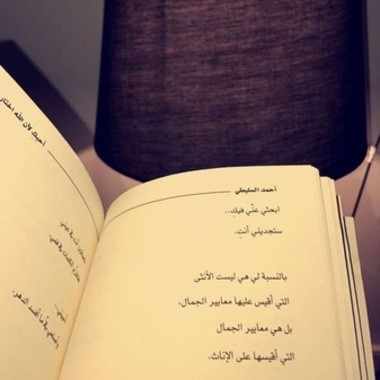 أحمد السليطي
ابحثي عنّي فيكِ..
ستجديني أنتِ.
بالنسبة لي هي ليست الأنثى
التي أقيس عليها معايير الجمال،
بل هي معايير الجمال
التي أقيسها على الإناث.
أحبك لأن الله اختار